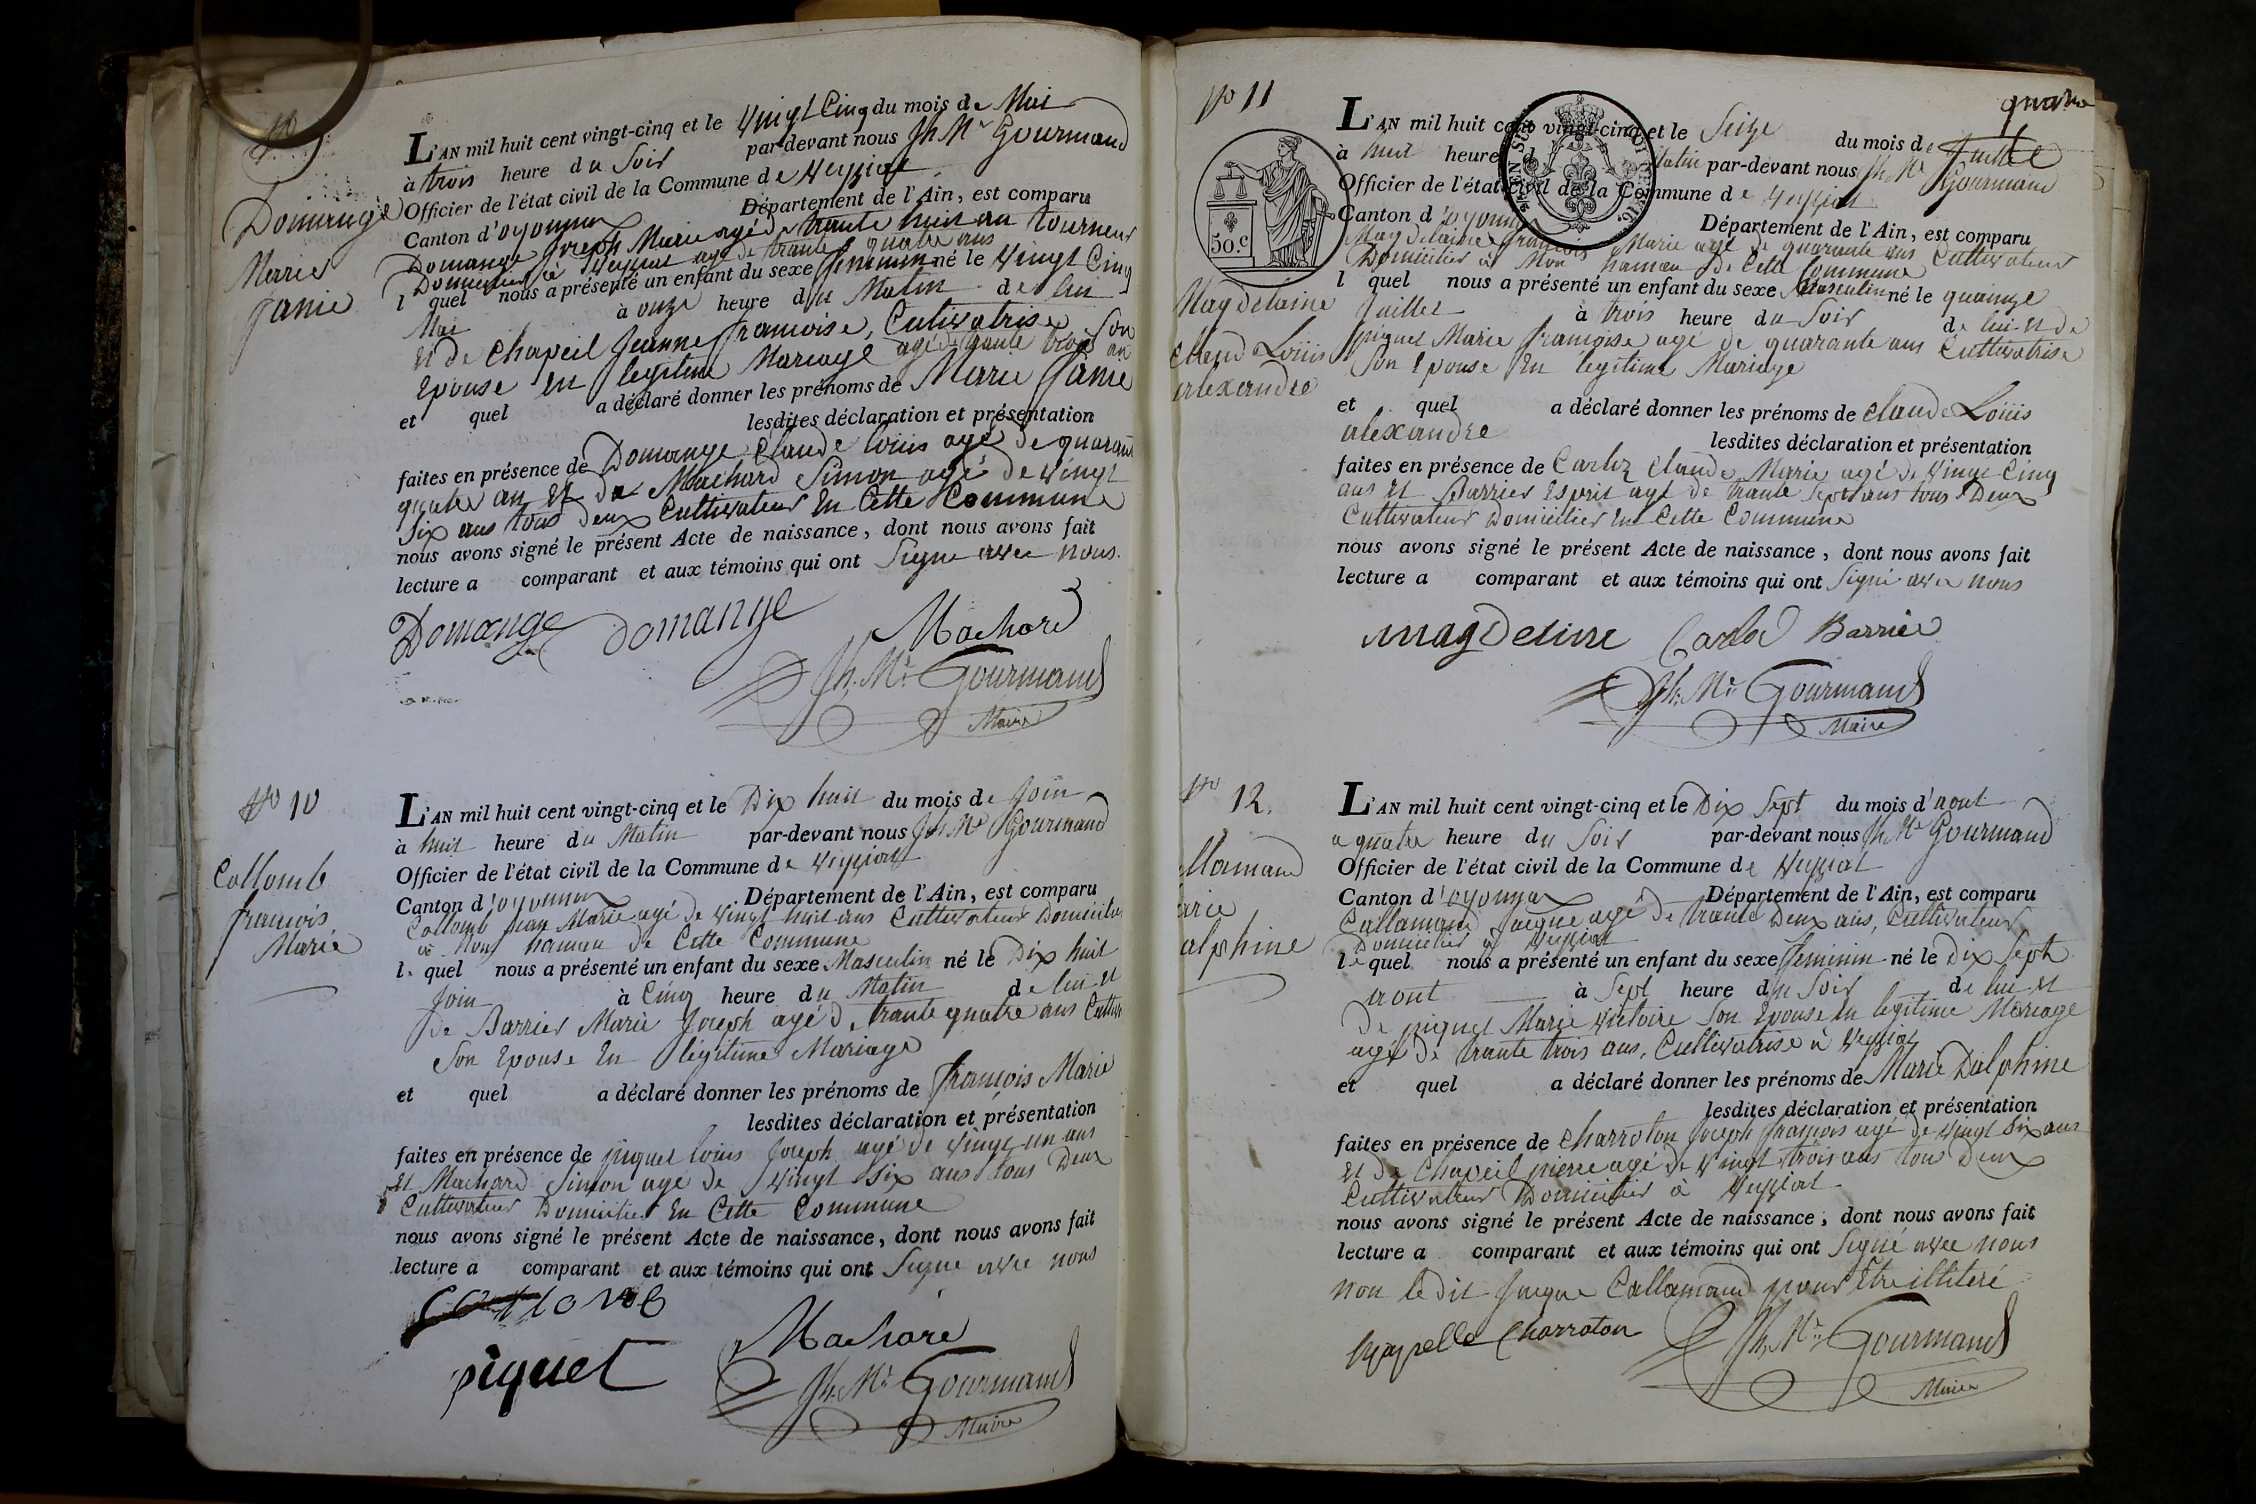 Domange
Marie
Janie
L'AN mil huit cent vingt-cinq et le vingt Cinq du mois de Mai
à trois heure du Soir par-devant nous Jh. Mie Gourmand
Officier de l'état civil de la Commune de Veyziat
Canton d'oyonnax Département de l'Ain, est comparu
Domange Joseph Marie agé de trante huit an tourneur
Domicilier à Veyziat agé de trante quatre ans
l quel nous a présenté un enfant du sexe feminin né le vingt Cinq
Mai à onze heure du Matin de lui
et de Chapeil Jeanne francoise, Cultivatrise, Son
Epouse en legitime Mariage agé de trante trois an
et quel a déclaré donner les prénoms de Marie Janie
lesdites déclaration et présentation
faites en présence de Domange Claude louis agé de quarante
quatre an et de Machard Simon agé de vingt
Six ans tous deux Cultivateur En Cette Commune
nous avons signé le présent Acte de naissance, dont nous avons fait
lecture a comparant et aux témoins qui ont Signe avec nous.
Domange Domange Machard
Jh. Mie Gourmand
Maire
No 10
Collomb
francois
Marie
L'AN mil huit cent vingt-cinq et le Dix huit du mois de Join
à huit heure du Matin par-devant nous Jh Mie Gourmand
Officier de l'état civil de la Commune de Veyziat
Canton d'oyonnax Département de l'Ain, est comparu
Collomb Jean Marie agé de vingt huit ans Cultivateur Domicilier
à Mons hameau de Cette Commune
le quel nous a présenté un enfant du sexe Masculin né le Dix huit
Join à Cinq heure du Matin de lui et
de Barrier Marie Joseph agé de trante quatre ans Cultiv
Son Epouse En légitime Mariage
et quel a déclaré donner les prénoms de francois Marie
lesdites déclaration et présentation
faites en présence de piquet louis Joseph agé de vingt un ans
et Machard Simon age de vingt Six ans tous Deux
Cultivateur Domicilier En Cette Commune
nous avons signé le présent Acte de naissance, dont nous avons fait
lecture a comparant et aux témoins qui ont Signe avec nous
Collomb
Machard
piquet
Jh. Mie Gourmand
Maire
quatre
No 11
50.c
Magdelaine
Claude Loüis
alexandre
L'AN mil huit cent vingt-cinq et le Seize du mois de Juillet
à huit heure du Matin par-devant nous Jh. Mie Gourmand
Officier de l'état civil de la Commune de Veyziat
Canton d'oyonnax Département de l'Ain, est comparu
Magdelaine francois Marie agé de quarante ans Cultivateur
Domicilier à Mon hameau de Cette Commune
l quel nous a présenté un enfant du sexe Masculin né le quainze
Juillet à trois heure du Soir de lui et de
piquet Marie françoise agé de quarante ans Cultivatrise
Son Epouse En legitime Mariage
et quel a déclaré donner les prénoms de Claude Loüis
alexandre lesdites déclaration et présentation
faites en présence de Carloz Claude Marie agé de vingt Cinq
ans et Barrier Esprit agé de trante sept ans tous Deux
Cultivateur Domicilier En Cette Commune
nous avons signé le présent Acte de naissance, dont nous avons fait
lecture a comparant et aux témoins qui ont Signé avec nous
magdeline Carlod Barrier
Jh. Mie Gourmand
Maire
No 12.
llamand
arie
alphine
L'AN mil huit cent vingt-cinq et le Dix Sept du mois d'aout
a quatre heure du Soir par-devant nous Jh. Mie Gourmand
Officier de l'état civil de la Commune de Veyziat
Canton d'oyonnax Département de l'Ain, est comparu
Callamand Jacque agé de trante Deux ans, Cultivateur
Domicilier à Veyziat
le quel nous a présenté un enfant du sexe feminin né le Dix Sept
aout à Sept heure du Soir de lui et
De piquet Marie victoire Son Epouse En legitime Mariage
agé de trante trois ans, Cultivatrise à Veyziat
et quel a déclaré donner les prénoms de Marie Dalphine
lesdites déclaration et présentation
faites en présence de Charroton Joseph françois agé de vingt Six ans
et de Chapeil pierre agé de vingt trois ans tous Deux
Cultivateur Domicilier à Veyziat
nous avons signé le présent Acte de naissance, dont nous avons fait
lecture a comparant et aux témoins qui ont Signé avec nous
non le dit Jacque Callamand pour Etre illiteré
Chapelle Charroton Jh. Mie Gourmand
Maire